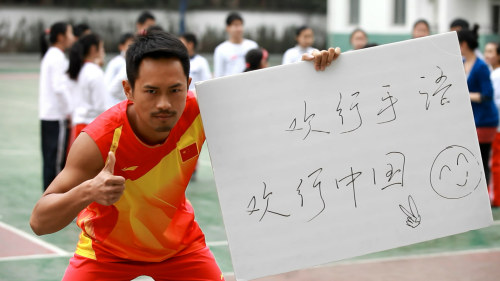 欢行手语
欢行中国